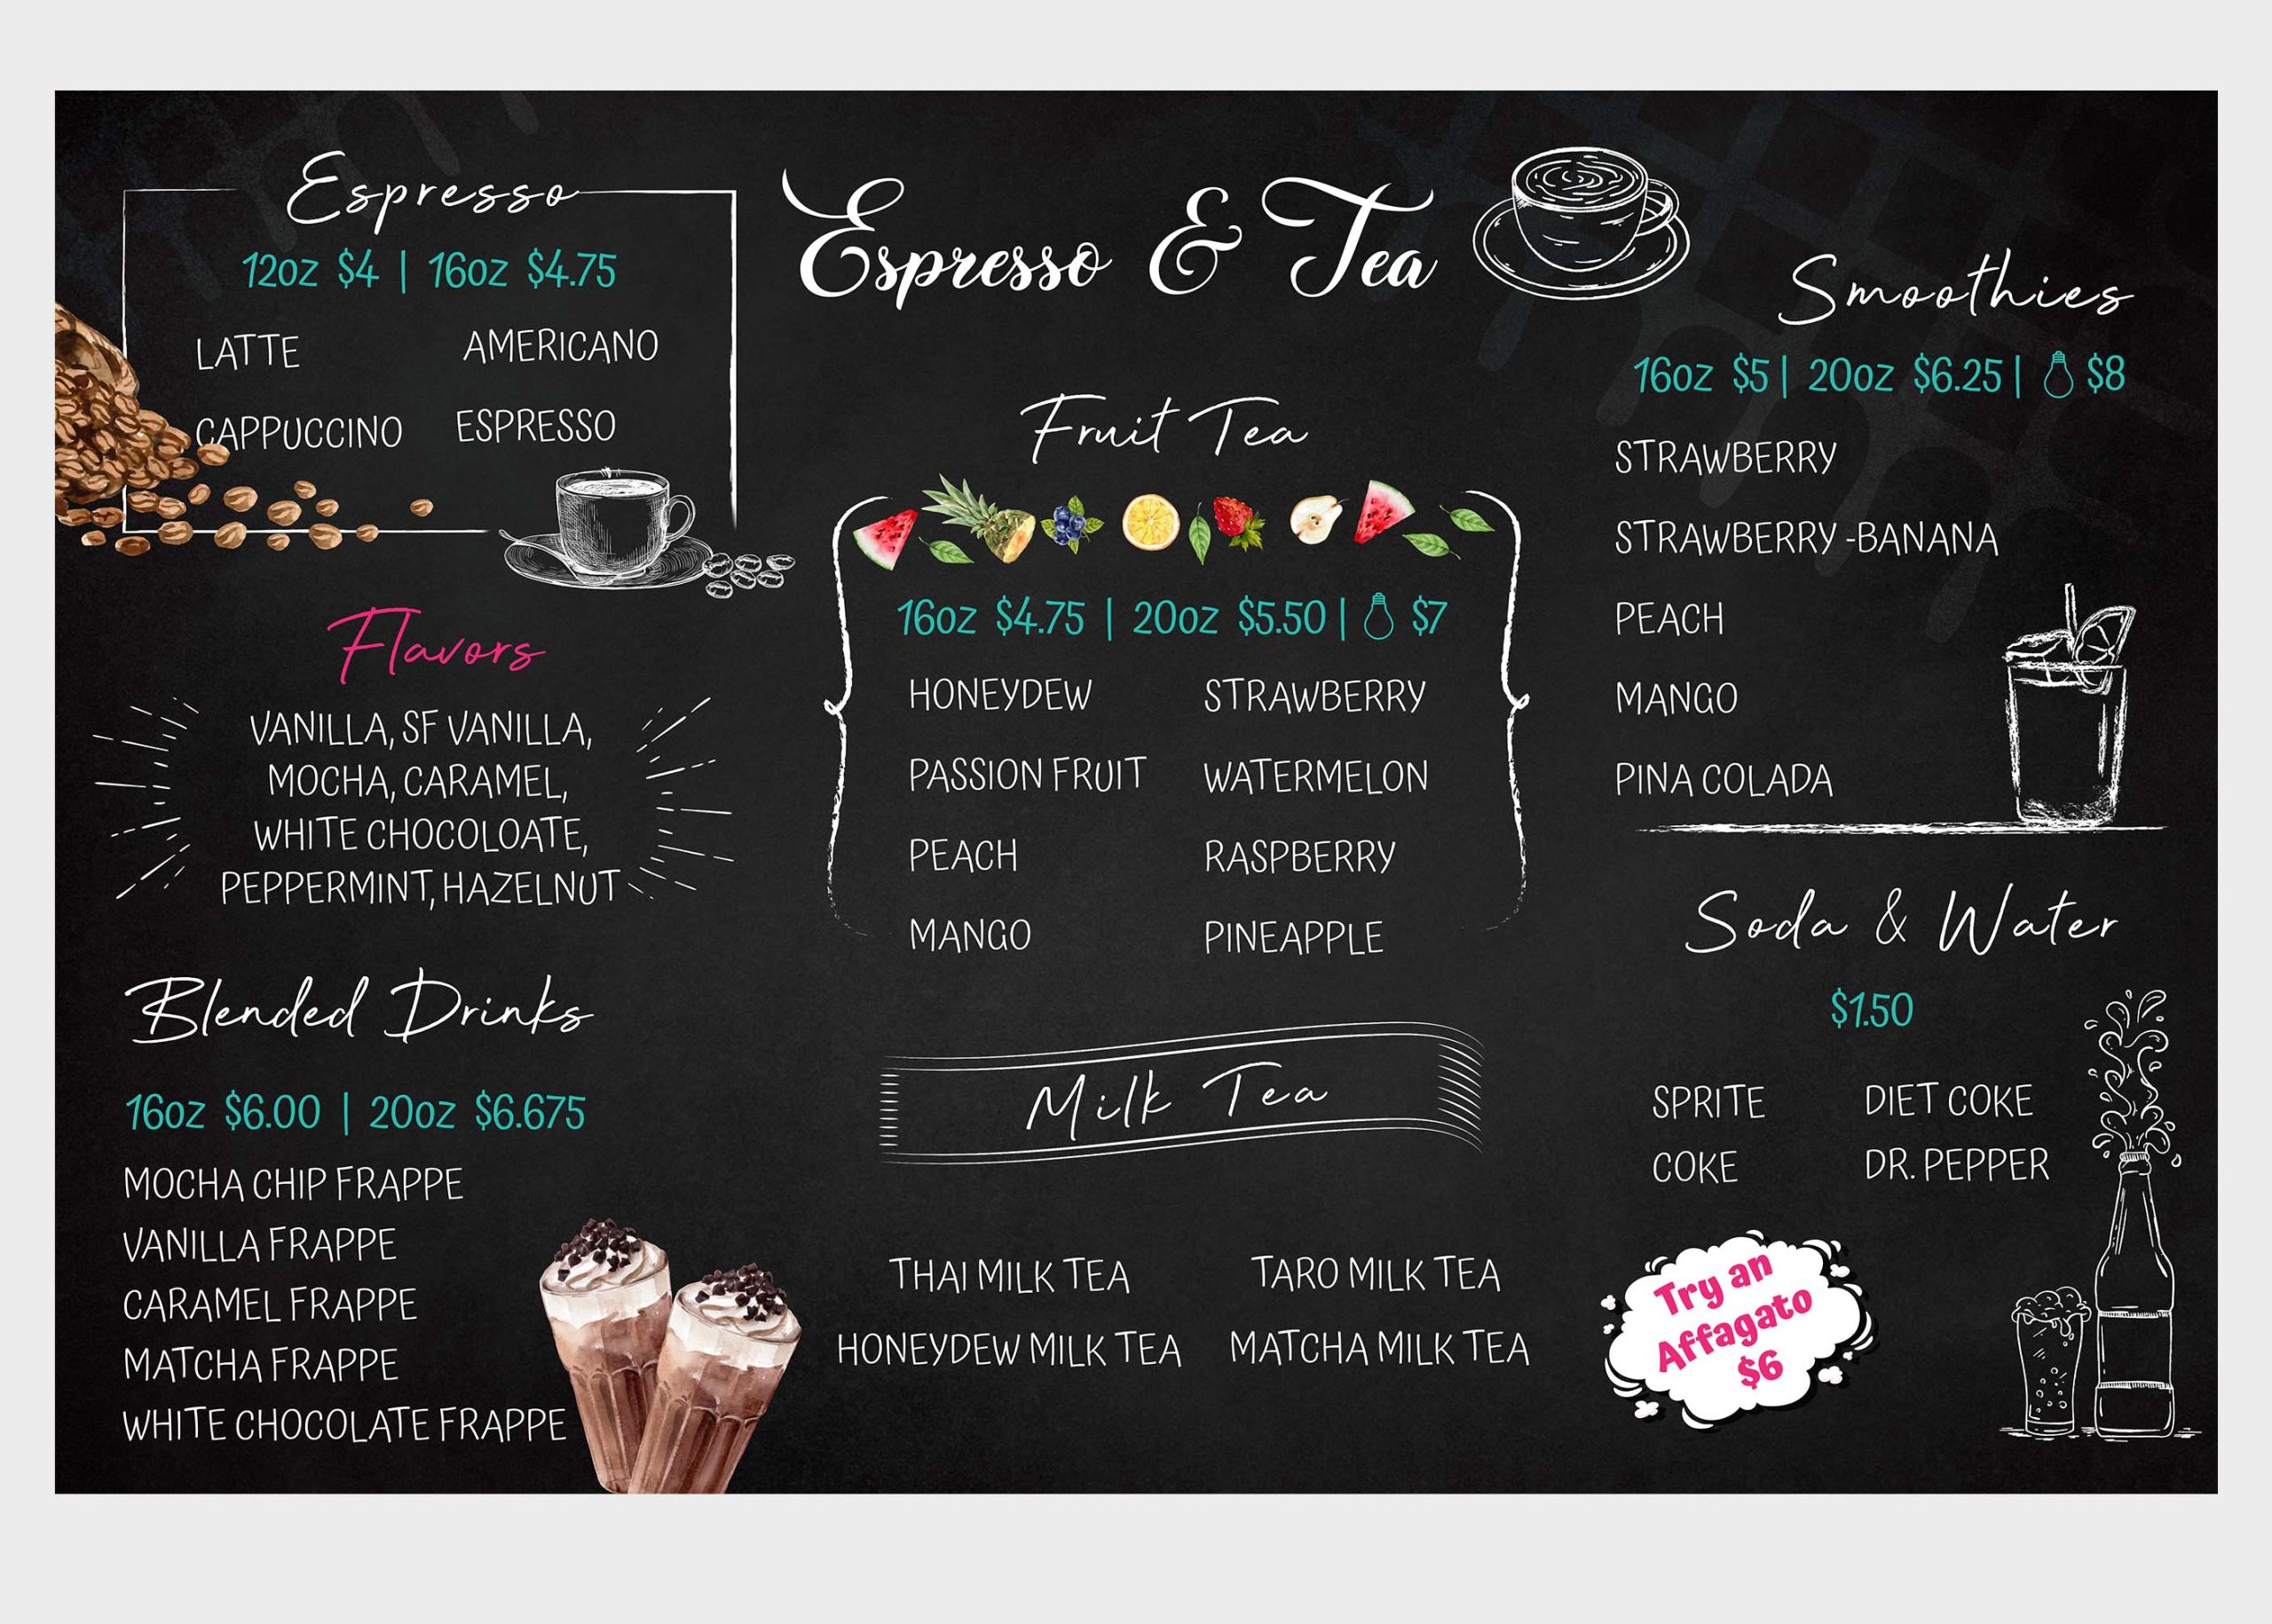 Espresso & Tea
Espresso
12oz $4 | 16oz $4.75
LATTE AMERICANO
CAPPUCCINO ESPRESSO
Flavors
VANILLA, SF VANILLA,
MOCHA, CARAMEL,
WHITE CHOCOLOATE,
PEPPERMINT, HAZELNUT
Blended Drinks
16oz $6.00 | 20oz $6.675
MOCHA CHIP FRAPPE
VANILLA FRAPPE
CARAMEL FRAPPE
MATCHA FRAPPE
WHITE CHOCOLATE FRAPPE
Fruit Tea
16oz $4.75 | 20oz $5.50 | $7
HONEYDEW STRAWBERRY
PASSION FRUIT WATERMELON
PEACH RASPBERRY
MANGO PINEAPPLE
Milk Tea
THAI MILK TEA TARO MILK TEA
HONEYDEW MILK TEA MATCHA MILK TEA
Smoothies
16oz $5 | 20oz $6.25 | $8
STRAWBERRY
STRAWBERRY -BANANA
PEACH
MANGO
PINA COLADA
Soda & Water
$1.50
SPRITE DIET COKE
COKE DR. PEPPER
Try an
Affagato
$6